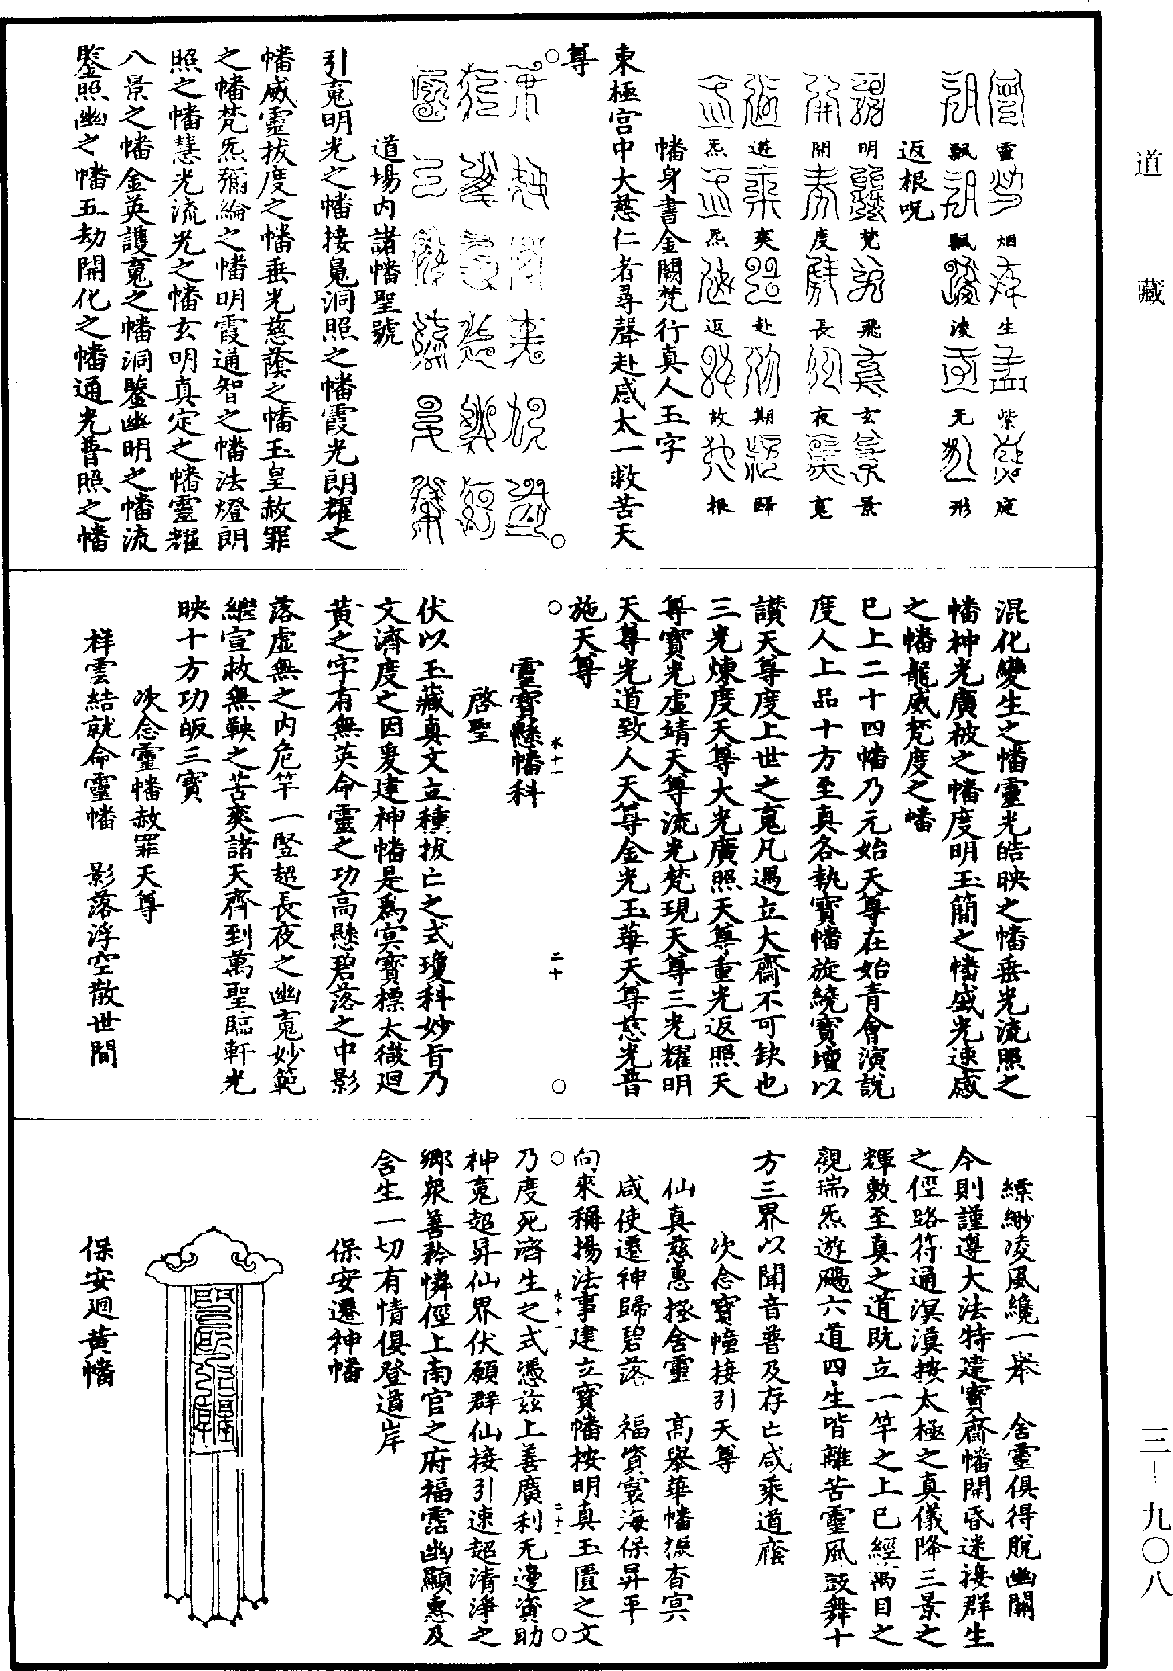 道藏
靈烟生紫庭
飄飄淩无形
返根呪
明梵飛玄景
開度長夜䰟
遊爽赴期歸
炁炁返故根
幡身書金闕梵行真人玉字
東極宫中大慈仁者尋聲赴感太一救苦天
尊
道場内諸幡聖號
引䰟明光之幡接䰟洞照之幡霞光朗耀之
幡威靈拔度之幡垂光慈蔭之幡玉皇赦罪
之幡梵炁彌綸之幡明霞通智之幡法燈朗
照之幡慧光流光之幡玄明真定之幡靈耀
八景之幡金英護䰟之幡洞鑒幽明之幡流
鑒照幽之幡五劫開化之幡通光普照之幡
混化變生之幡靈光皓映之幡垂光流照之
幡神光廣被之幡度明玉簡之幡盛光速感
之幡龍威梵度之幡
已上二十四幡乃元始天尊在始青會演說
度人上品十方至真各執寶幡旋繞寶壇以
讃天尊度上世之䰟凡遇立大齋不可缺也
三光煉度天尊大光廣照天尊重光返照天
尊寶光虛靖天尊流光梵現天尊三光耀明
天尊光道致人天尊金光玉華天尊慈光普
施天尊
靈寶懸幡科
水十一
二十
啓聖
伏以玉藏真文立種拔亡之式瓊科妙旨乃
文濟度之因爰建神幡是爲㝠寶標太微迴
黄之字有無英命靈之功高懸碧落之中影
落虛無之内危竿一竪超長夜之幽䰟妙範
纔宣救無鞅之苦爽諸天齊到萬聖臨軒光
映十方功皈三寶
次念靈幡赦罪天尊
祥雲結就命靈幡　影落浮空散世間
縹緲凌風纔一舉　含靈俱得脫幽關
今則謹遵大法特建寶齋幡開昏迷接群生
之徑路符通溟漠按太極之真儀降三景之
輝敷至真之道既立一竿之上已經萬目之
覩瑞炁遊颺六道四生皆離苦靈風鼓舞十
方三界以聞音普及存亡咸乘道廕
次念寶幢接引天尊
仙真慈惠拯含靈　高舉華幡照杳㝠
咸使遷神歸碧落　福資寰海保昇平
向來稱揚法事建立寶幡按明真玉匱之文
水十一
二十一
乃度死濟生之式憑茲上善廣利无邊資助
神䰟超昇仙界伏願群仙接引速超清淨之
鄉衆善矜憐徑上南宫之府福霑幽顯惠及
含生一切有情俱登道岸
保安遷神幡
保安迴黄幡
三—九〇八